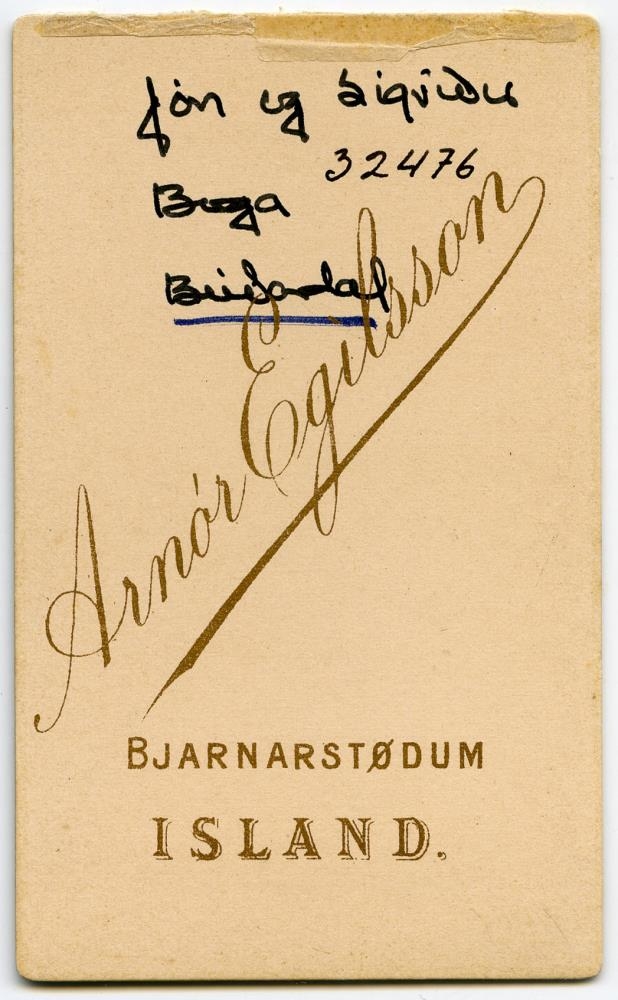 Jón og Sigríður
32476
Arnór Egilsson
BJARNARSTØDUM
ISLAND.